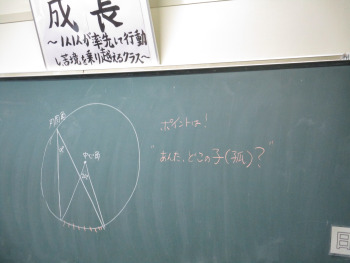 成長
～1人1人が率先して行動
し苦境を乗り越えるクラス～
円周角
中心角
ポイントは!
"あんた、どこの子(孤)?"
日